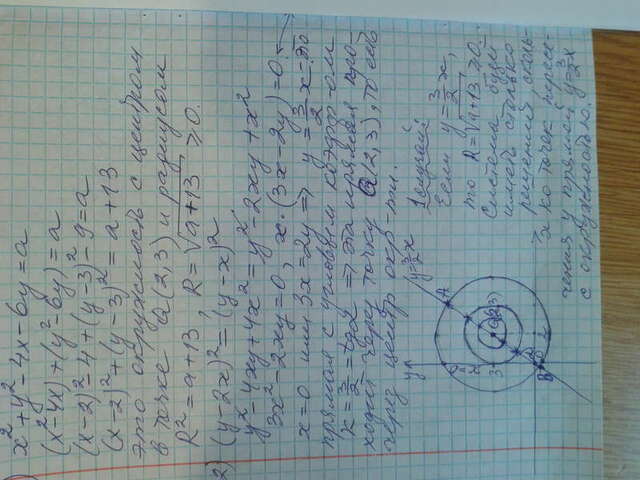 ) x² + y² - 4x - 6y = a
(x² - 4x) + (y² - 6y) = a
(x - 2)² - 4 + (y - 3)² - 9 = a
(x - 2)² + (y - 3)² = a + 13
это окружность с центром
в точке a(2,3) и радиусом
R² = a + 13, R = √a+13 ≥ 0.
2) (y - 2x)² = (y - x)²
y² - 4xy + 4x² = y² - 2xy + x²
3x² - 2xy = 0, x·(3x - 2y) = 0 →
x = 0 или 3x = 2y => y = 3/2 x это
прямая с угловым коэффиц-ом
k = 3/2 = tgα => эта прямая про-
ходит через точку a(2,3), то есть
через центр окр-ти.
y
y = 3/2 x
A
3
B
2
x
Если y = 3/2 x,
то R = √a+13 ≥ 0.
Система будет
иметь столько
решений сколь-
ко точек пересе-
чения у прямой y = 3/2 x
с окружностью.